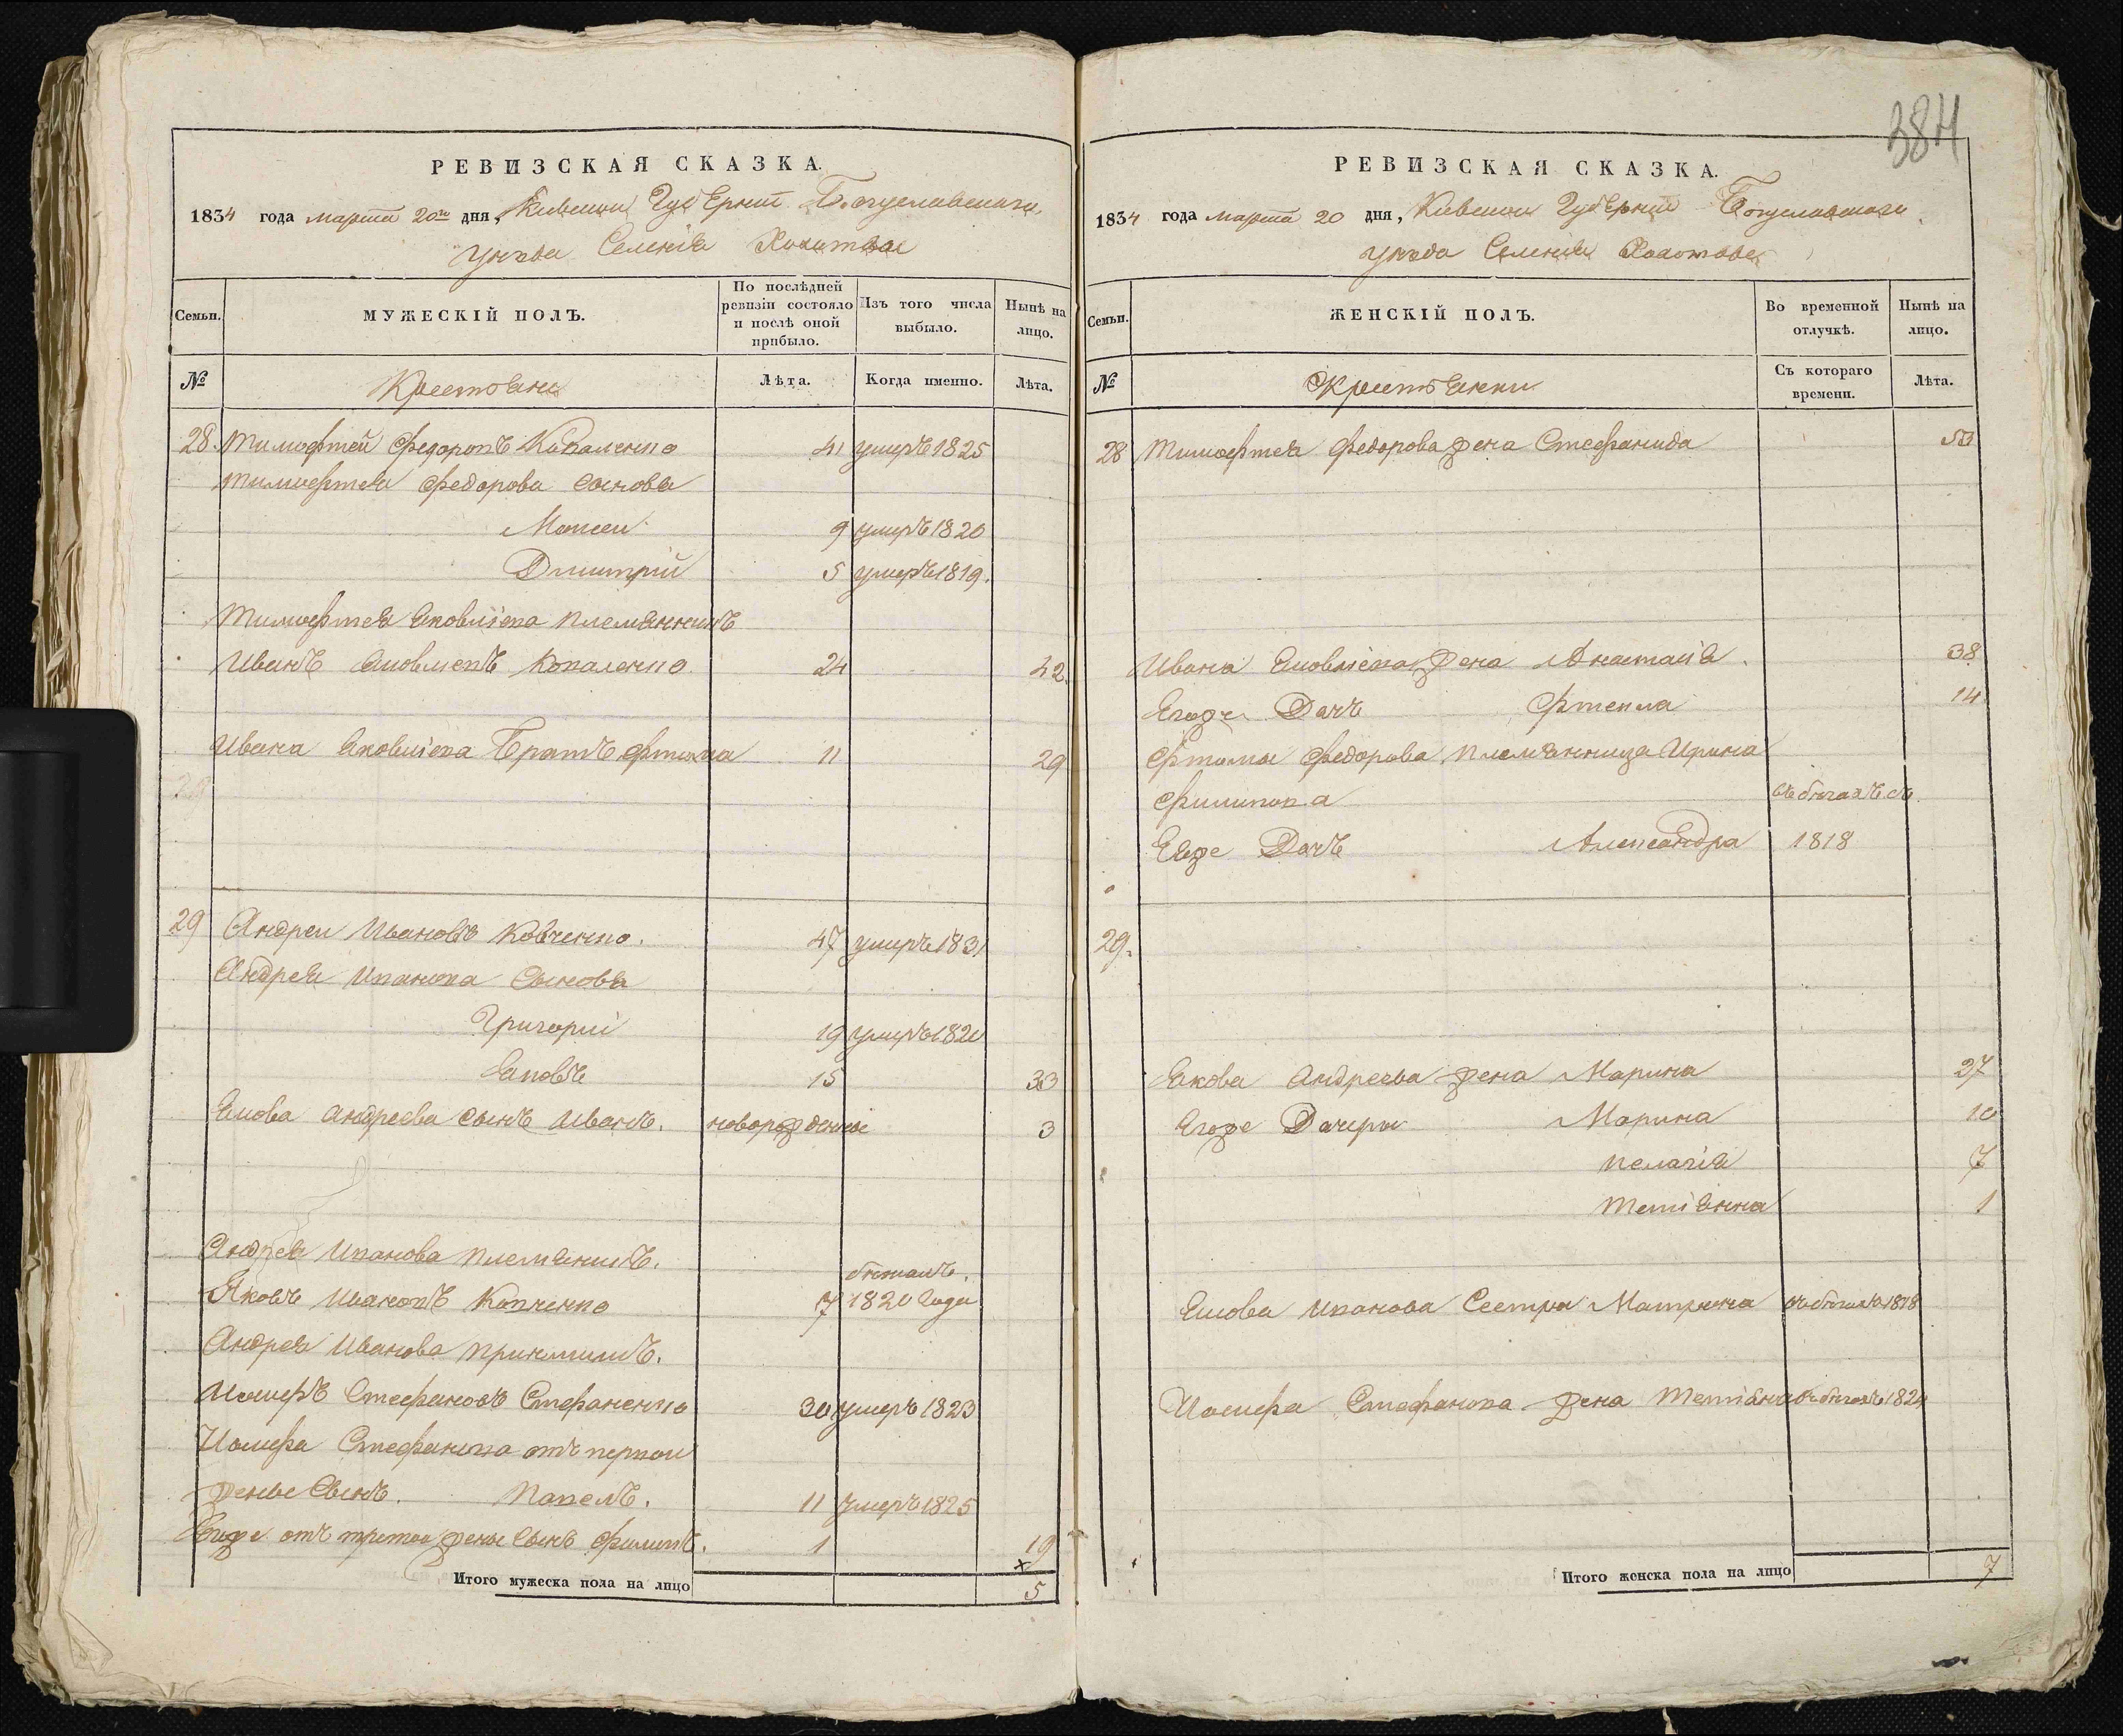 РЕВИЗСКАЯ СКАЗКА.
1834 года марта 20го дня, Киевской Губернии Богуславскаго
уезда Селения
Семьи.
МУЖЕСКІЙ ПОЛЪ.
По послѣдней ревизіи состояло и послѣ оной прибыло.
Изъ того числа выбыло.
Нынѣ на лицо.
№
Крестьяне
Лѣта.
Когда именно.
Лѣта.
28. Тимофтей Федоровъ Коваленко 41 умеръ 1825
Тимофтея Федорова сыновья
Моисеи 9 умеръ 1820
Дмитрій 5 умеръ 1819.
Тимофтея Яковлiева племянникъ
Иванъ Яковлевъ Коваленко 24 42
Ивана Яковлiева Братъ 11 29
29 Андреи Ивановъ Ковченко. 47 умеръ 1831
Андрея Иванова Сыновья
Григориі 19 умеръ
Яковъ 15 33
Якова Андреева сынъ Иванъ. новорожденны 3
Андрея Иванова племяникъ.
бежалъ.
Яковъ Ивановъ Ковченко 7 1820 Года
Андрея Иванова
Иосифъ Стефановъ Стефаненко 30 умеръ 1823
Иосифа Стефанова отъ первои
жены Сынъ. Павелъ. 11 умеръ 1825
Егоже отъ третои жены Сынъ Филипъ. 1 19
Итого мужеска пола на лицо 5
384
РЕВИЗСКАЯ СКАЗКА.
1834 года марта 20 дня, Киевской Губернии Богуславскаго
уезда Селения
Семьи.
ЖЕНСКІЙ ПОЛЪ.
Во временной отлучкѣ.
Нынѣ на лицо.
№
Крестьянки
Съ котораго времени.
Лѣта.
28 Тимофтея Федорова жена Стефанида
Ивана Яковлiева жена Анастаиія 38
Егоже Дочъ Фтекла 14
Федорова племянница Ирина
Филипова въ бегахъ съ
Ея же Дочъ Александра 1818
29.
Якова Андреева жена Марина 27
Егоже Дочери Марина 10
Пелагія 7
Тетіянна 1
Якова Иванова Сестра Матрина въ бегахъ 1818
Иосифа Стефанова жена Тетіяна въ бегахъ
Итого женска пола на лицо 7